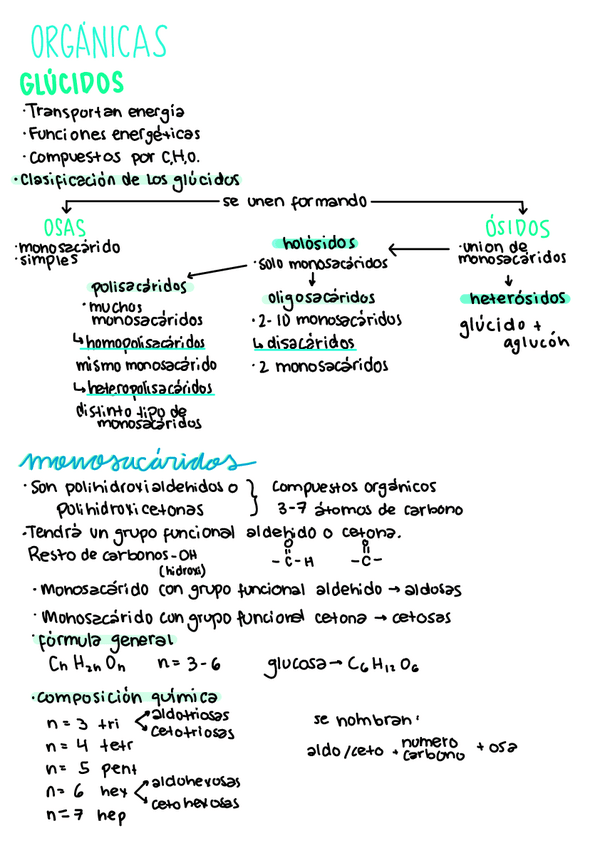 ORGÁNICAS
GLÚCIDOS
·Transportan energía
·Funciones energéticas
·Compuestos por C,H,O.
·Clasificación de los glúcidos
se unen formando
OSAS
·monosacárido
·simples
holósidos
·solo monosacáridos
ÓSIDOS
·union de
monosacáridos
polisacáridos
·muchos
monosacáridos
↳homopolisacáridos
mismo monosacárido
↳heteropolisacáridos
distinto tipo de
monosacáridos
oligosacáridos
·2-10 monosacáridos
↳disacáridos
·2 monosacáridos
heterósidos
glúcido +
aglucón
monosacáridos
·Son polihidroxialdehidos o
polihidroxicetonas
compuestos orgánicos
3-7 átomos de carbono
·Tendrá un grupo funcional aldehido o cetona.
Resto de carbonos-OH
(hidroxi)
O
-C-H
O
-C-
·Monosacárido con grupo funcional aldehido → aldosas
·Monosacárido con grupo funcional cetona → cetosas
·fórmula general
Cn H2n On n= 3-6 glucosa → C6 H12 O6
·composición química
n= 3 tri
aldotriosas
cetotriosas
n= 4 tetr
n= 5 pent
n= 6 hex
aldohexosas
cetohexosas
n=7 hep
se nombran:
aldo/ceto + numero carbono + osa